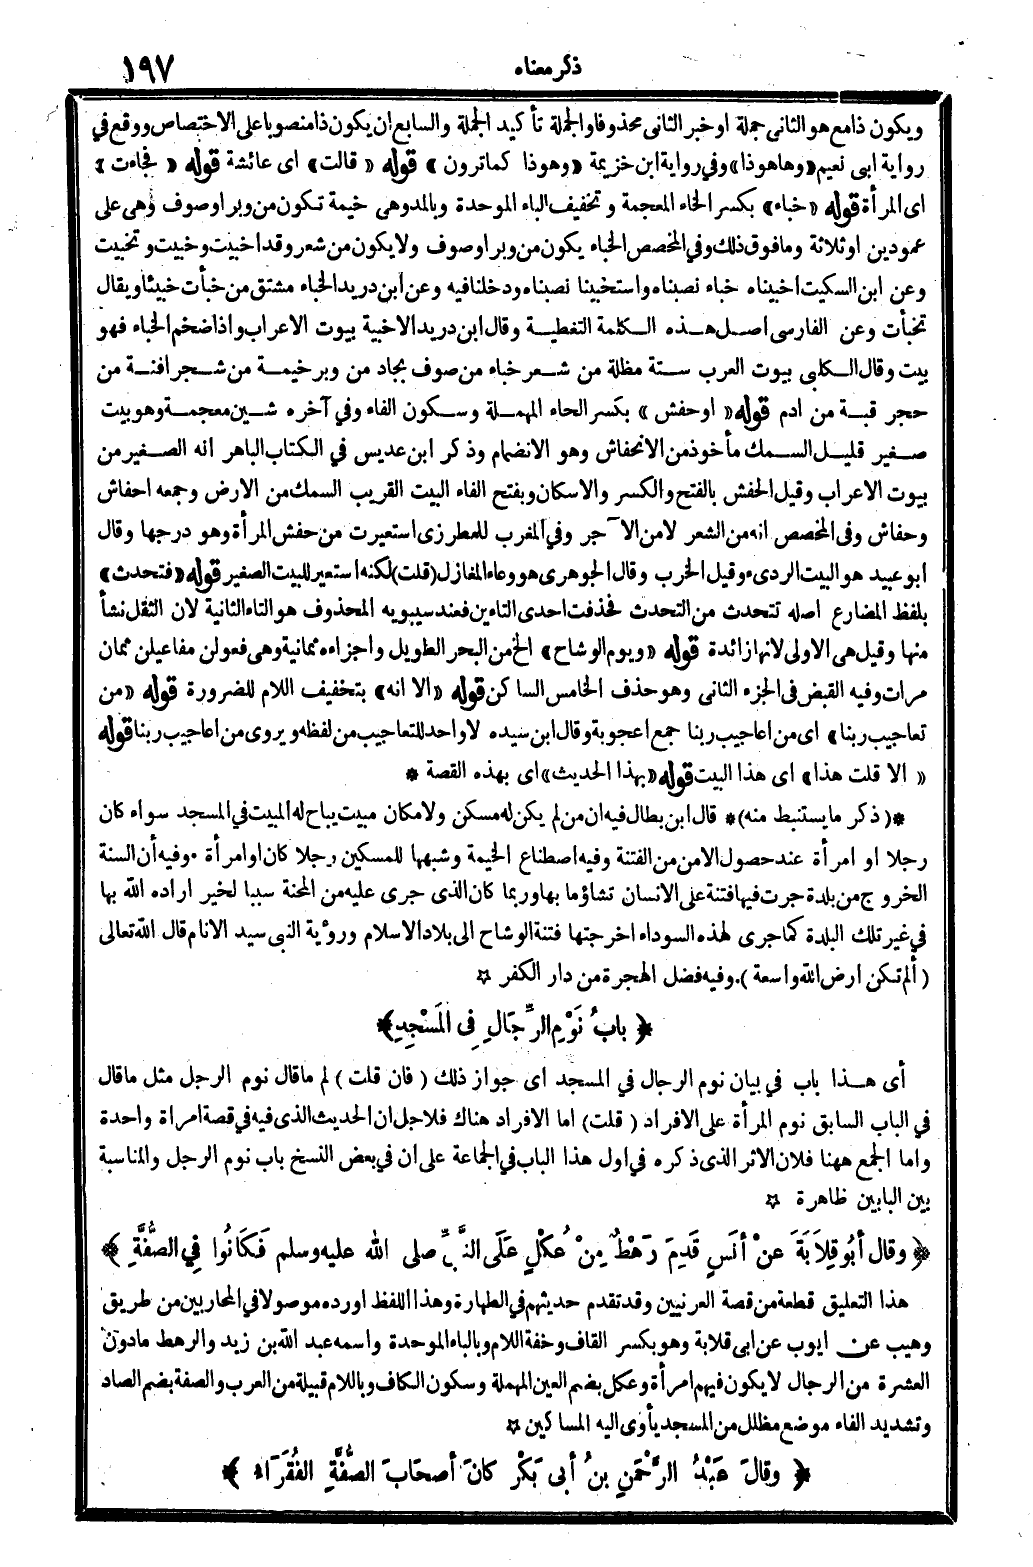 ذكر معناه ١٩٧
ويكون ذا مع هو الثاني جملة او خبر الثاني محذوفا والجملة تأكيد الجملة والسابع ان يكون ذا منصوبا على الاختصاص ووقع في
رواية ابى نعيم «وها هوذا» وفي رواية ابن خزيمة «وهوذا كما ترون» قوله «قالت» اى عائشة قوله «فجاءت»
اى المرأة قوله «خباء» بكسر الخاء المعجمة و تخفيف الباء الموحدة وبالمد وهى خيمة تكون من وبر او صوف وهى على
عمودين او ثلاثة وما فوق ذلك وفي المخصص الخباء يكون من وبر او صوف ولا يكون من شعر وقد اخبيت وخبيت وتخبيت
وعن ابن السكيت اخبيناه خباء نصبناه واستخبينا نصبناه ودخلنا فيه وعن ابن دريد الخباء مشتق من خبأت خبيئا ويقال
تخبأت وعن الفارسى اصل هذه الكلمة التغطية وقال ابن دريد الاخبية بيوت الاعراب واذا ضخم الخباء فهو
بيت وقال الكلبى بيوت العرب ستة مظلة من شعر خباء من صوف بجاد من وبر خيمة من شجر افنة من
حجر قبة من ادم قوله «او حفش» بكسر الحاء المهملة وسكون الفاء وفي آخره شين معجمة وهو بيت
صغير قليل السمك مأخوذ من الانحفاش وهو الانضمام وذكر ابن عديس في الكتاب الباهر انه الصغير من
بيوت الاعراب وقيل الحفش بالفتح والكسر والاسكان وبفتح الفاء البيت القريب السمك من الارض وجمعه احفاش
وحفاش وفى المخصص انه من الشعر لا من الآجر وفي المغرب للمطرزى استعيرت من حفش المرأة وهو درجها وقال
ابو عبيد هو البيت الردىء وقيل الخرب وقال الجوهرى هو وعاء المغازل (قلت) لكنه استعير للبيت الصغير قوله «فتحدث»
بلفظ المضارع اصله تتحدث من التحدث فحذفت احدى التاءين فعند سيبويه المحذوف هو التاء الثانية لان الثقل نشأ
منها وقيل هى الاولى لانها زائدة قوله «ويوم الوشاح» الخ من البحر الطويل واجزاءه ثمانية وهى فعولن مفاعيلن ثمان
مرات وفيه القبض فى الجزء الثانى وهو حذف الخامس الساكن قوله «الا انه» بتخفيف اللام للضرورة قوله «من
تعاجيب ربنا» اى من اعاجيب ربنا جمع اعجوبة وقال ابن سيده لا واحد للتعاجيب من لفظه ويروى من اعاجيب ربنا قوله
«الا قلت هذا» اى هذا البيت قوله «بهذا الحديث» اى بهذه القصة *
*(ذكر ما يستنبط منه)* قال ابن بطال فيه ان من لم يكن له مسكن ولا مكان مبيت يباح له المبيت في المسجد سواء كان
رجلا او امرأة عند حصول الامن من الفتنة وفيه اصطناع الخيمة وشبهها للمسكين رجلا كان او امرأة . وفيه أن السنة
الخروج من بلدة جرت فيها فتنة على الانسان تشاؤما بها وربما كان الذى جرى عليه من المحنة سببا لخير اراده الله بها
في غير تلك البلدة كما جرى لهذه السوداء اخرجتها فتنة الوشاح الى بلاد الاسلام ورؤية النبى سيد الانام قال الله تعالى
(ألم تكن ارض الله واسعة). وفيه فضل الهجرة من دار الكفر ☆
﴿ بابُ نَوْمِ الرِّجَالِ فِى المَسْجِدِ ﴾
أى هذا باب في بيان نوم الرجال في المسجد اى جواز ذلك (فان قلت) لم ما قال نوم الرجل مثل ما قال
في الباب السابق نوم المرأة على الافراد (قلت) اما الافراد هناك فلاجل ان الحديث الذى فيه في قصة امراة واحدة
واما الجمع ههنا فلان الاثر الذى ذكره في اول هذا الباب في الجماعة على ان في بعض النسخ باب نوم الرجل والمناسبة
بين البابين ظاهرة ☆
﴿ وقال أبُو قِلَابَةَ عنْ أنَسٍ قَدِمَ رَهْطٌ مِنْ عُكْلٍ عَلَى النَّبىِّ صلى الله عليه وسلم فَكَانُوا فِي الصُّفَّةِ ﴾
هذا التعليق قطعة من قصة العرنيين وقد تقدم حديثهم في الطهارة وهذا اللفظ اورده موصولا في المحاربين من طريق
وهيب عن ايوب عن ابى قلابة وهو بكسر القاف وخفة اللام وبالباء الموحدة واسمه عبد الله بن زيد والرهط ما دون
العشرة من الرجال لا يكون فيهم امرأة وعكل بضم العين المهملة وسكون الكاف وباللام قبيلة من العرب والصفة بضم الصاد
وتشديد الفاء موضع مظلل من المسجد يأوى اليه المساكين ☆
﴿ وقالَ عَبْدُ الرَّحْمنِ بنُ أبى بَكْرٍ كانَ أصحَابَ الصُّفَّةِ الفُقَرَاءَ ﴾